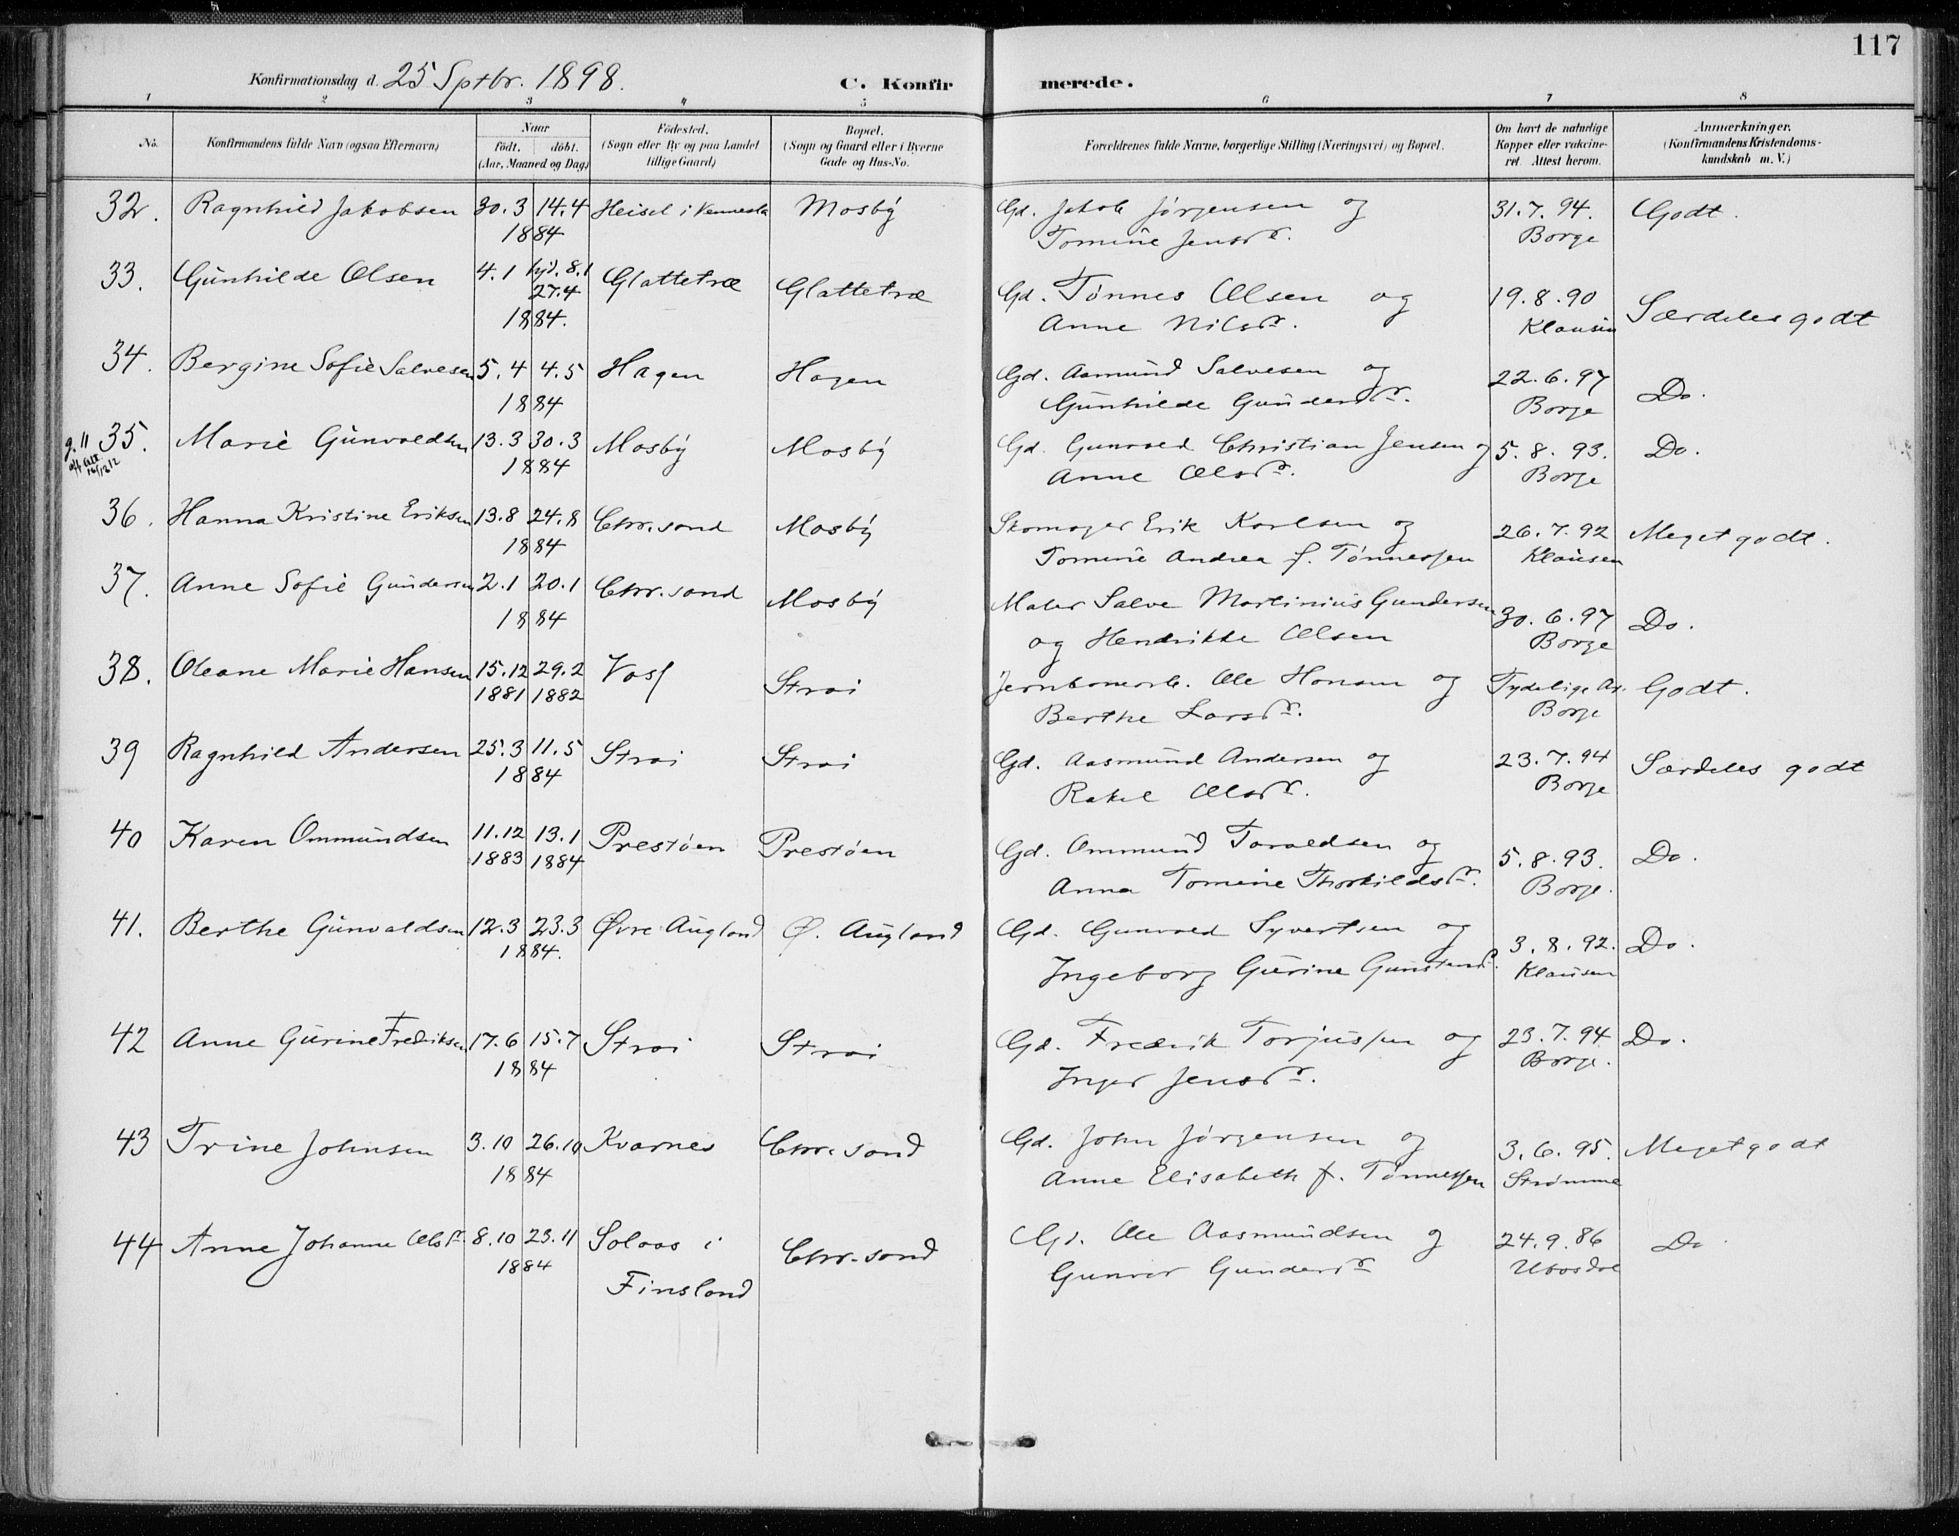 117
Konfirmationsdag d. 25 Sptbr. 1898.
C. Konfirmerede.
1 2 3 4 5 6 7 8
No.
Konfirmandens fulde Navn (ogsaa Efternavn)
Naar
födt. döbt.
(Aar, Maaned og Dag)
Födested.
(Sogn eller By og paa Landet
tillige Gaard)
Bopæl.
(Sogn og Gaard eller i Byerne
Gade og Hus-No.
Forældrenes fulde Navne, borgerlige Stilling (Næringsvei) og Bopæl.
Om havt de naturlige
Kopper eller vakcine-
ret. Attest herom.
Anmærkninger.
(Konfirmandens Kristendoms-
kundskab m. V.)
32. Ragnhild Jakobsen 30.3 14.4 Heisel i Vennesla Mosby Gd. Jakob Jørgensen og 31.7.94. Godt.
1884 Tomine Jensdr. Borge
33. Gunhilde Olsen 4.1 hjd. 8.1 Glattetræ Glattetræ Gd. Tønnes Olsen og 19.8.90 Særdeles godt
27.4
1884. Anne Nilsdr. Klausen
34. Bergine Sofie Salvesen 5.4 4.5 Hagen Hagen Gd. Aamund Salvesen og 22.6.97 Do.
1884 Gunhilde Gundersdr. Borge
35. Marie Gunvaldsen 13.3 30.3 Mosby Mosby Gd. Gunvald Christian Jensen og 5.8.93. Do.
1884 Anne Olsdr. Borge
36. Hanna Kristine Eriksen 13.8 24.8 Chr.sand Mosby Skomager Erik Karlsen og 26.7.92 Meget godt.
1884 Tomine Andrea f. Tønnessen Klausen
37. Anne Sofie Gundersen 2.1 20.1 Chr.sand Mosby Maler Salve Martinius Gundersen 30.6.97 Do.
1884 og Hendrikke Olsen Borge
38. Oleane Marie Hansen 15.12 29.2 Voss Strai Jernbanearb. Ole Hansen og Tydelige Ar. Godt.
1881 1882 Berthe Larsdr. Borge
39 Ragnhild Andersen 25.3 11.5 Strai Strai Gd. Aasmund Andersen og 23.7.94 Særdeles godt
1884 Rakel Olsdr. Borge
40 Karen Ommundsen 11.12 13.1 Prestøen Prestøen Gd. Ommund Taraldsen og 5.8.93. Do.
1883 1884 Anna Tomine Thorkildsdr. Borge.
41. Berthe Gunvaldsen 12.3 23.3 Øvre Augland Ø. Augland Gd. Gunvald Syvertsen og 3.8.92. Do.
1884. Ingeborg Gurine Gunstensdr. Klausen
42 Anne Gurine Fredriksen 17.6 15.7 Strai Strai Gd. Fredrik Torjussen og 23.7.94 Do.
1884 Inger Jensdr. Borge.
43 Trine Johnsen 3.10 26.10 Kvarnes Chr.sand Gd. John Jørgensen og 3.6.95. Meget godt
1884 Anne Elisabeth f. Tønnessen Strømme
44 Anne Johanne Olsdr. 8.10 23.11 Solaas i Chr.sand Gd. Ole Aasmundsen og 24.9.86 Do
1884 Finsland Gunvor Gundersdr Ubosdal